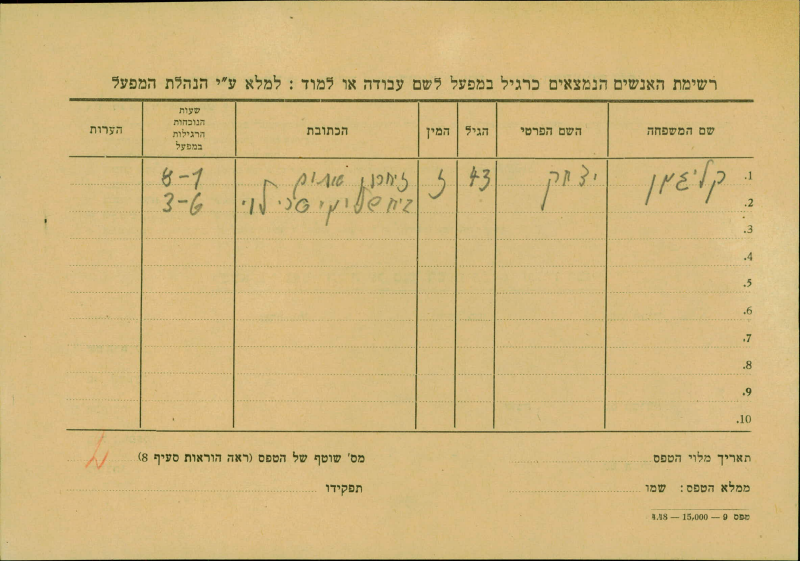 רשימת האנשים הנמצאים כרגיל במפעל לשם עבודה או למוד : למלא ע״י הנהלת המפעל
שם המשפחה השם הפרטי הגיל המין הכתובת שעות הנוכחות הרגילות במפעל הערות
1. קליגמן יצחק 43 ז זיכרון 8-1
2. לוי 3-6
3.
4.
5.
6.
7.
8.
9.
10.
תאריך מלוי הטפס מס' שוטף של הטפס (ראה הוראות סעיף 8)
ממלא הטפס: שמו תפקידו
טפס 9 — 15,000 — 4.48